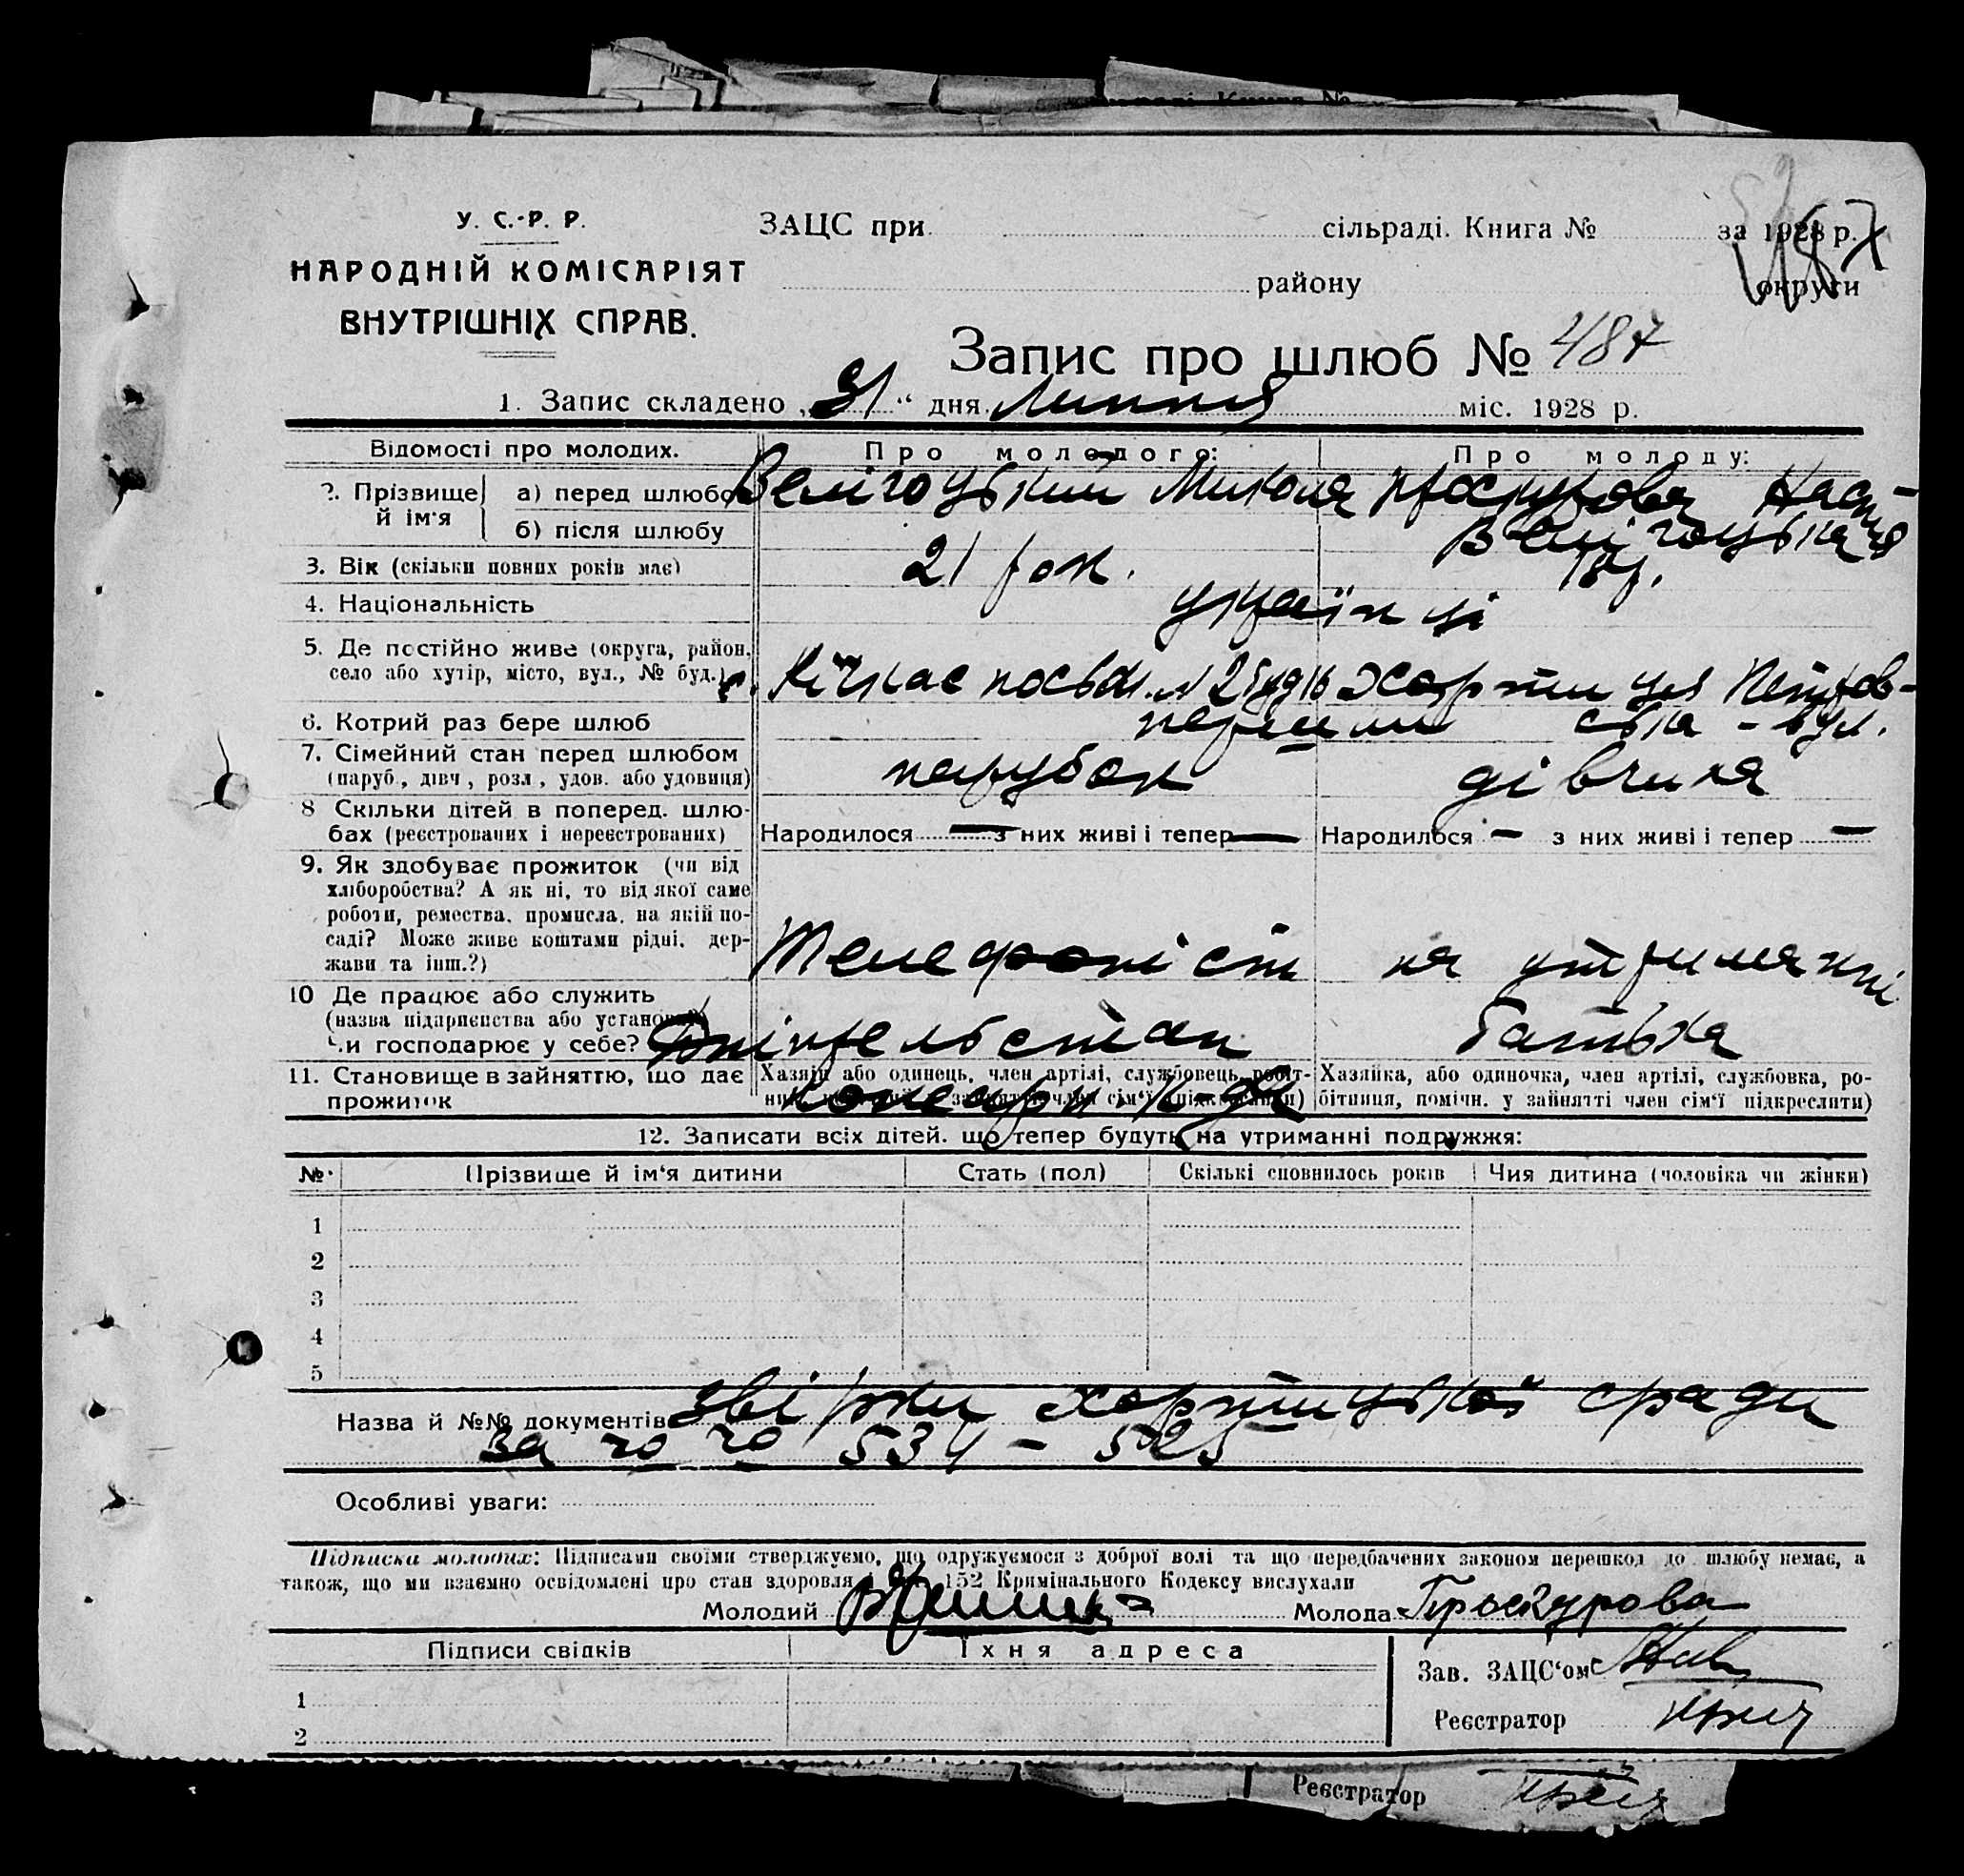 У. С.-Р. Р.
НАРОДНІЙ КОМІСАРІЯТ
ВНУТРІШНІХ СПРАВ.
ЗАЦС при сільраді. Книга № за 1928 р.
району округи
Запис про шлюб № 487
1. Запис складено „31“ дня Липня міс. 1928 р.
Відомості про молодих. Про молодого: Про молоду:
2. Прізвище й ім'я а) перед шлюбо Велігоцький Микола Проскурова Настя
б) після шлюбу Велігоцька
3. Вік (скільки повних років має) 21 рок. 18 р.
4. Національність українці
5. Де постійно живе (округа, район, село або хутір, місто, вул., № буд.) с. Кічкас Хортиця Петров-
ська - вул.
6. Котрий раз бере шлюб перший
7. Сімейний стан перед шлюбом парубок дівчина
(паруб., дівч., розл., удов. або удовиця)
8 Скільки дітей в поперед. шлю-
бах (реєстрованих і нереєстрованих) Народилося — з них живі і тепер — Народилося — з них живі і тепер —
9. Як здобуває прожиток (чи від
хліборобства? А як ні, то від якої саме
роботи, ремества, промисла, на якій по-
саді? Може живе коштами рідні, дер-
жави та інш.?) Телефоніст на утриманні
10 Де працює або служить
(назва підприємства або установи)
Чи господарює у себе? Дніпрельстан батька
11. Становище в зайняттю, що дає
прожиток
Хазяїн або одинець, член артілі, службовець, робіт-
Хазяйка, або одиночка, член артілі, службовка, ро-
бітниця, помічн. у зайнятті член сім'ї підкреслити)
12. Записати всіх дітей, що тепер будуть на утриманні подружжя:
№ Прізвище й ім'я дитини Стать (пол) Скількі сповнилось років Чия дитина (чоловіка чи жінки)
1
2
3
4
5
Назва й №№ документів Звірки хортицької сради
за 534 - 525
Особливі уваги:
Підписка молодих: Підписами своїми стверджуємо, що одружуємося з доброї волі та що передбачених законом перешкод до шлюбу немає, а
також, що ми взаємно освідомлені про стан здоровля і 152 Кримінального Кодексу вислухали
Молодий Молода Проскурова
Підписи свідків Їхня адреса
Зав. ЗАЦС'ом
1
Реєстратор
2
Реєстратор